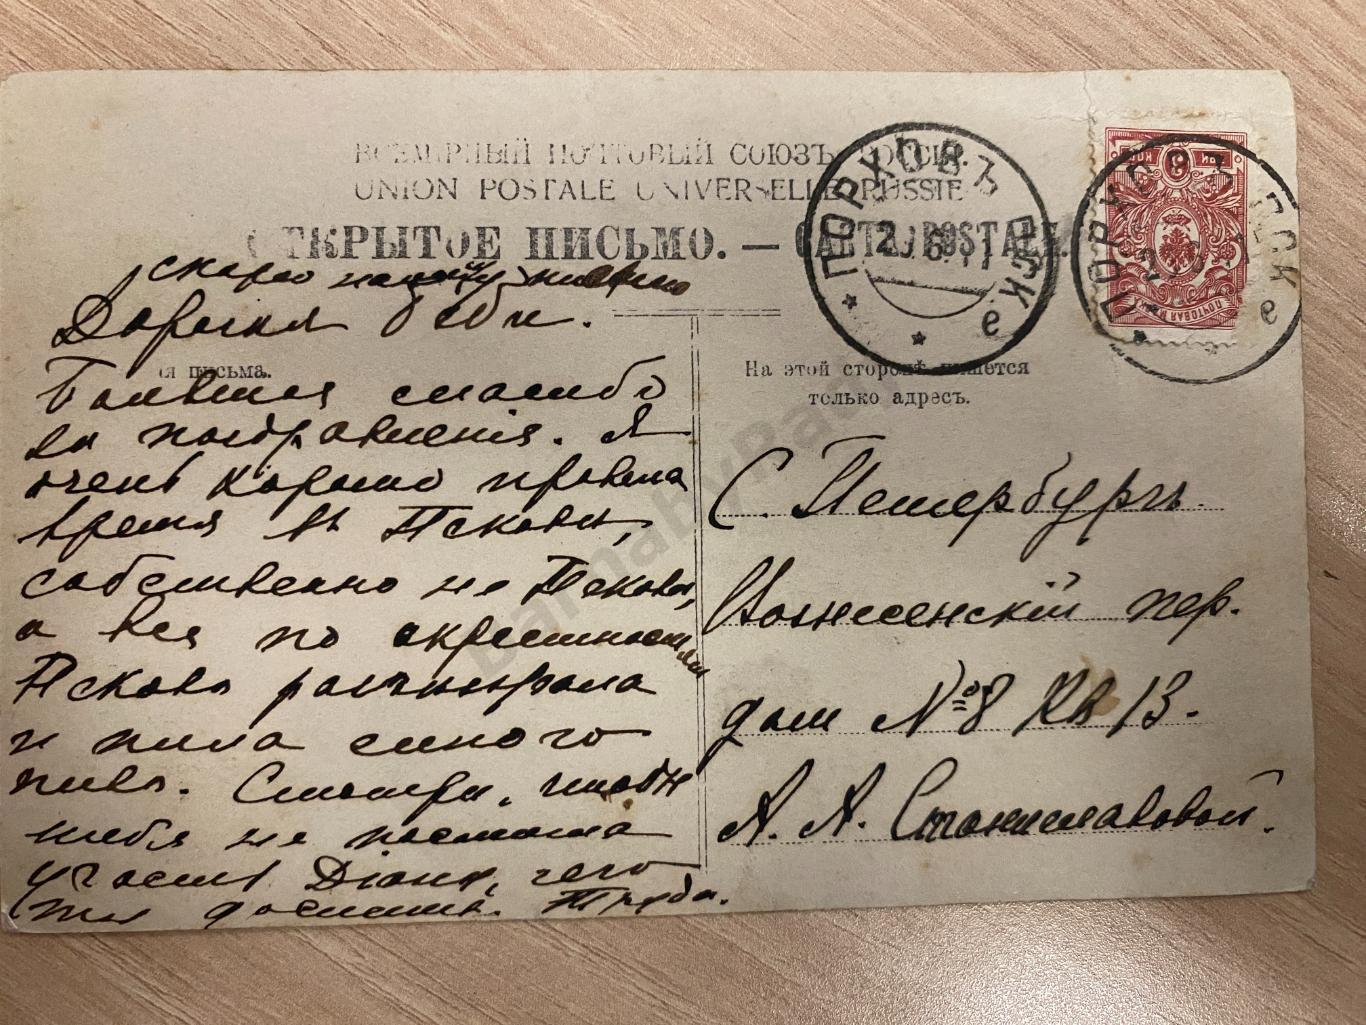 ВСЕМІРНЫЙ ПОЧТОВЫЙ СОЮЗЪ РОССІЯ.
UNION POSTALE UNIVERSELLE RUSSIE
ОТКРЫТОЕ ПИСЬМО. — CARTE POSTALE
ПОРХОВЪ ПСК
2 6 11
е
ПОРХОВЪ ПСК
е
скоро напишу
Дорогая
Большая спасибо
за поздравленія. Я
очень хорошо провела
время въ Псковѣ,
собственно не Псковѣ,
а вся по окрестностямъ
Пскова
и пила много
пива. Смотри, чтобы
тебя не постигла
участь Діаны, чего
ты достигнешь.
ля письма.
На этой сторонѣ пишется
только адресъ.
С. Петербургъ.
Вознесенскій пер.
дом №8 Кв 13.
А. А. Станиславовой.